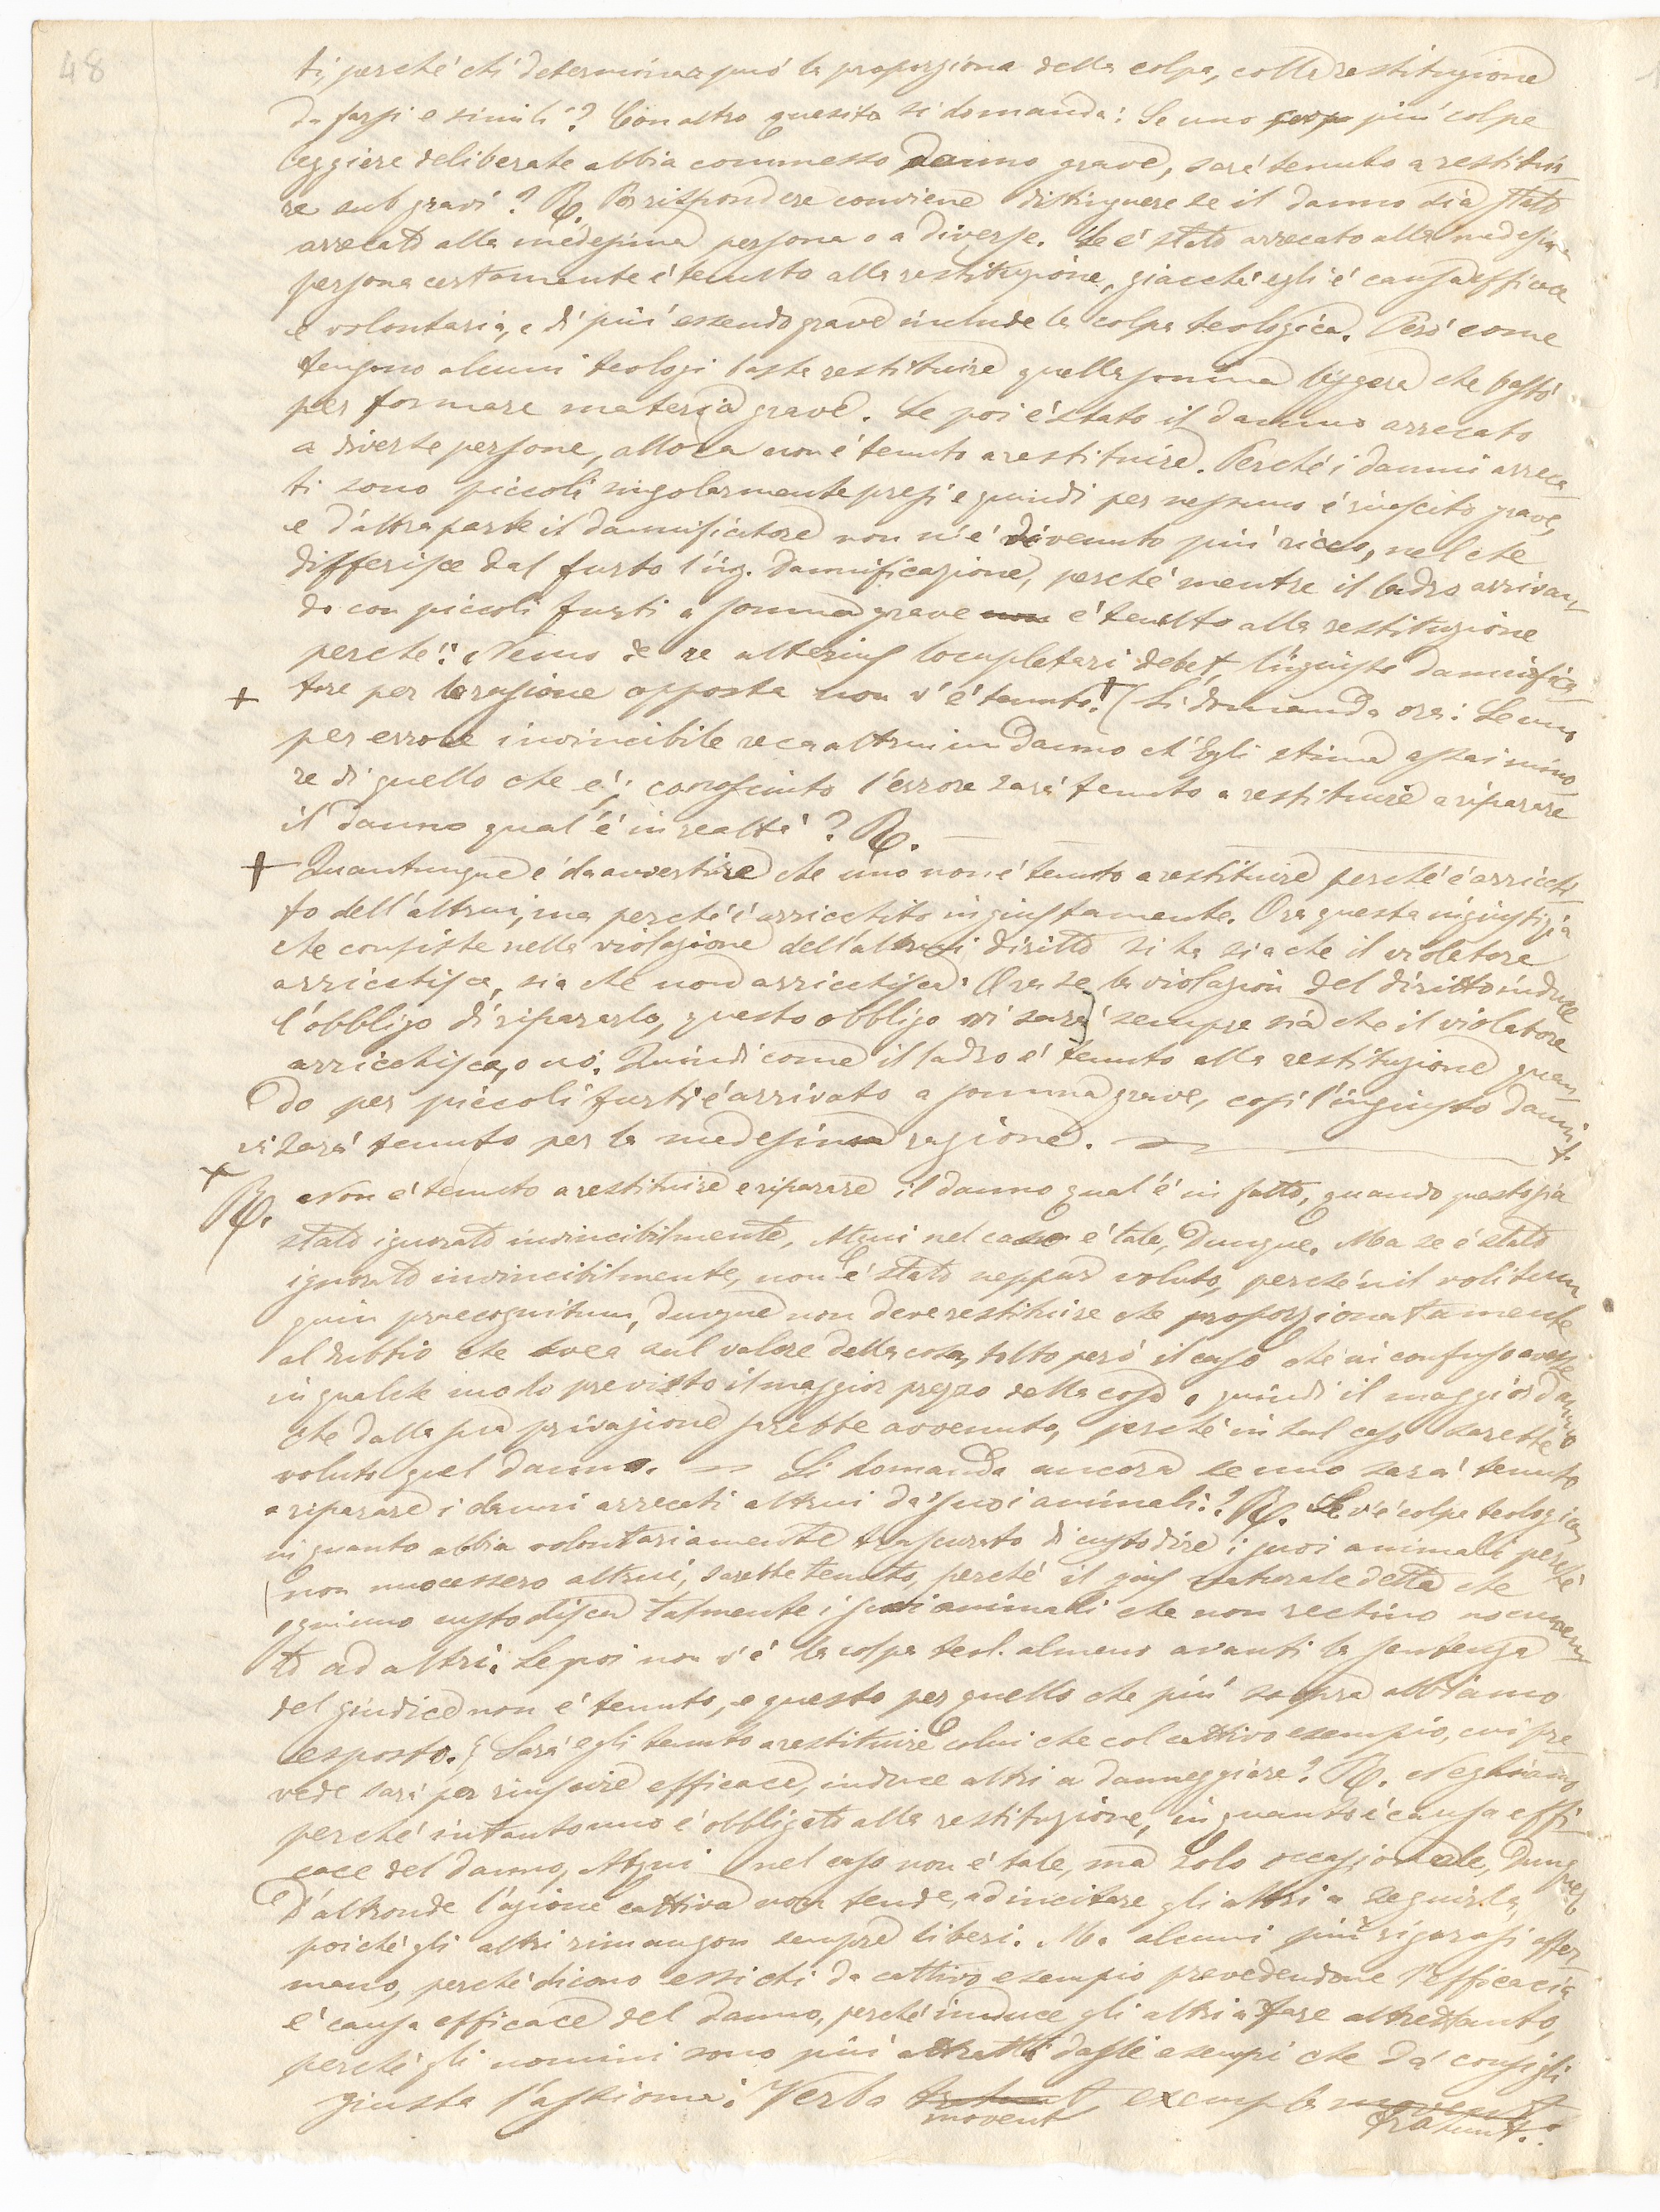 48
ti, perché chi determinar può la proporzione della colpa, colla restituzione
da farsi e simili? Con altro quesito si domanda: Se uno più colpe
leggiere deliberate abbia commesso danno grave, sarà tenuto a restitui-
re sub gravi? R. Per rispondere conviene distinguere se il danno sia stato
arrecato alla medesima persona o a diverse. Se è stato arrecato alla medesima
persona certamente è tenuto alla restituzione, giacché egli è causa efficace
e volontaria, e di più essendo grave include la colpa teologica. Però come
tengono alcuni teologi basta restituire quella somma leggera che bastò
per formare materia grave. Se poi è stato il danno arrecato
a diverse persone, allora non è tenuto a restituire. Perché i danni arreca-
ti sono piccoli singolarmente presi e quindi per nessuno è riuscito grave,
e d'altra parte il dannificatore non n'è divenuto più ricco, nel che
differisce dal furto l'ing. dannificazione, perché mentre il ladro arrivan-
do con piccoli furti a somma grave non è tenuto alla restituzione
perché: Nemo de re alterius locupletari debet, l'ingiusto dannifica-
+ tore per la ragione opposta non v'è tenuto. + (Si domanda ora: Se uno
per errore invincibile reca altrui un danno ch'Egli stima assai mino-
re di quello che è; conosciuto l'errore sarà tenuto a restituire a riparare
il danno qual'è in realtà? R. —
+ Quantunque è da avvertire che uno non è tenuto a restituire perché è arricchi-
to dell'altrui, ma perché è arricchito ingiustamente. Ora questa ingiustizia
che consiste nella violazione dell'altrui diritto si ha sia che il violatore
arricchisca, sia che non arricchisca. Ora se la violazion del diritto induce
l'obbligo di ripararlo, questo obbligo vi sarà sempre sia che il violatore
arricchisca, o no. Quindi come il ladro è tenuto alla restituzione quan-
do per piccoli furti è arrivato a somma grave, così l'ingiusto dannif.
vi sarà tenuto per la medesima ragione. —
+ R. Non è tenuto a restituire e riparare il danno qual'è in fatto, quando questo sia
stato ignorato invincibilmente, Atqui nel caso è tale, Dunque. Ma se è stato
ignorato invincibilmente, non è stato neppur voluto, perché nil volitum
quin praecognitum, dunque non deve restituire che proporzionatamente
al dubbio che avea sul valore della cosa, tolto però il caso che in confuso avesse
in qualche modo previsto il maggior prezzo della cosa e quindi il maggior danno
che dalla sua privazione sarebbe avvenuto, perché in tal caso sarebbe
voluto quel danno. — Si domanda ancora se uno sarà tenuto
a riparare i danni arrecati altrui da' suoi animali? R. Se v'è colpa teologica,
in quanto abbia volontariamente trascurato di custodire i suoi animali perché
non nuocessero altrui, sarebbe tenuto, perché il gius naturale detta che
ognuno custodisca talmente i suoi animali che non rechino nocumen-
to ad altri. Se poi non v'è la colpa teol. almeno avanti la sentenza
del giudice non è tenuto, e questo per quello che più sopra abbiamo
esposto. Sarà egli tenuto a restituire colui che col cattivo esempio, cui pre-
vede sarà per riuscire efficace, induce altri a danneggiare? R. Neghiamo
perché intanto uno è obbligato alla restituzione, in quanto è causa effi-
cace del danno, Atqui nel caso non è tale, ma solo occasionale, Dunque
D'altronde l'azione cattiva non tende ad incitare gli altri a seguirla,
poiché gli altri rimangon sempre liberi. Ma alcuni più rigorosi affer-
mano, perché dicono essi chi da cattivo esempio prevedendone l'efficacia
è causa efficace del danno, perché induce gli altri a fare altrettanto,
perché gli uomini sono più attratti dagli esempi che da' consigli
giusta l'assioma: Verba trahunt, exempla movent
movent trahunt.